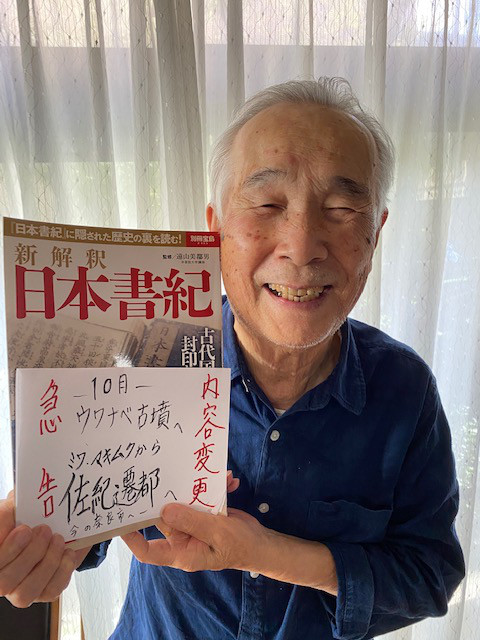 『日本書紀』に隠された歴史の裏を読む!
別冊宝島
新解釈
監修/遠山美都男
日本書紀
古代
封印
急告
内容変更
―10月―
ウワナベ古墳へ
ミワ、マキムクから
佐紀遷都へ
今の奈良市へ――